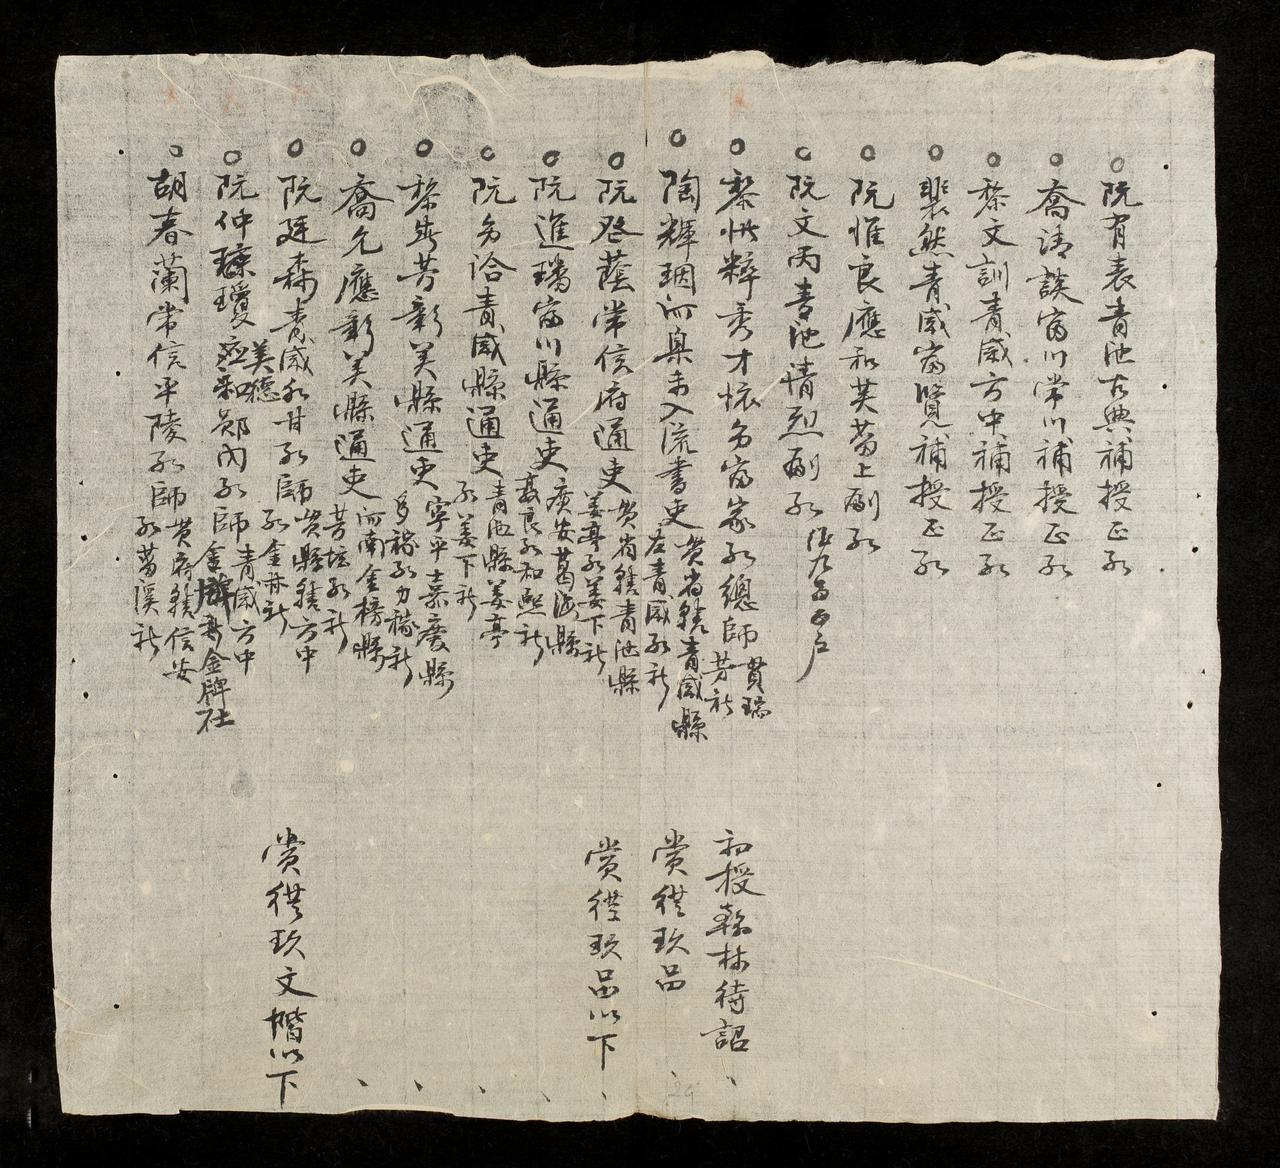 阮有表青池古典補授正總
喬清談富川常川補授正總
黎文訓青威方中補授正總
裴然青威富賢補授正總
阮惟良應和芙蒥上副總
阮文丙青池情烈副總
黎 粹秀才懷 富家總總師貫瑞芳社
陶輝珚河 未入流書吏貫省轄青威縣左青威總社
阮登蔭常信府通吏貫省轄青池縣姜亭總姜下社
阮進璠富川縣通吏廣安葛海縣 良總和熙社
阮 洽青威縣通吏青池縣姜亭總姜下社
黎 芳彰美縣通吏寧平嘉慶縣多稼總力稼社
喬允應彰美縣通吏河南金榜縣芳坛總社
阮廷森青威永甘總師貫縣轄方中總金 社
阮仲瓊瓊美德應和鄭內總師青威方中金牌 金牌社
胡春蘭常信平陵總師貫府轄信安總葛溪社
初授翰林待詔
賞從玖品
賞從玖品以下
賞從玖文階以下